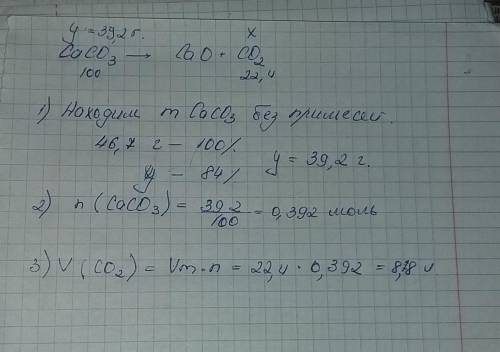 y = 39,2 г. x
CaCO3 → CaO + CO2
100 22,4
1) Находим m CaCO3 без примесей.
46,7 г – 100%
y – 84% y = 39,2 г.
2) n (CaCO3) = 39,2 / 100 = 0,392 моль
3) V (CO2) = Vm·n = 22,4 · 0,392 = 8,78 л